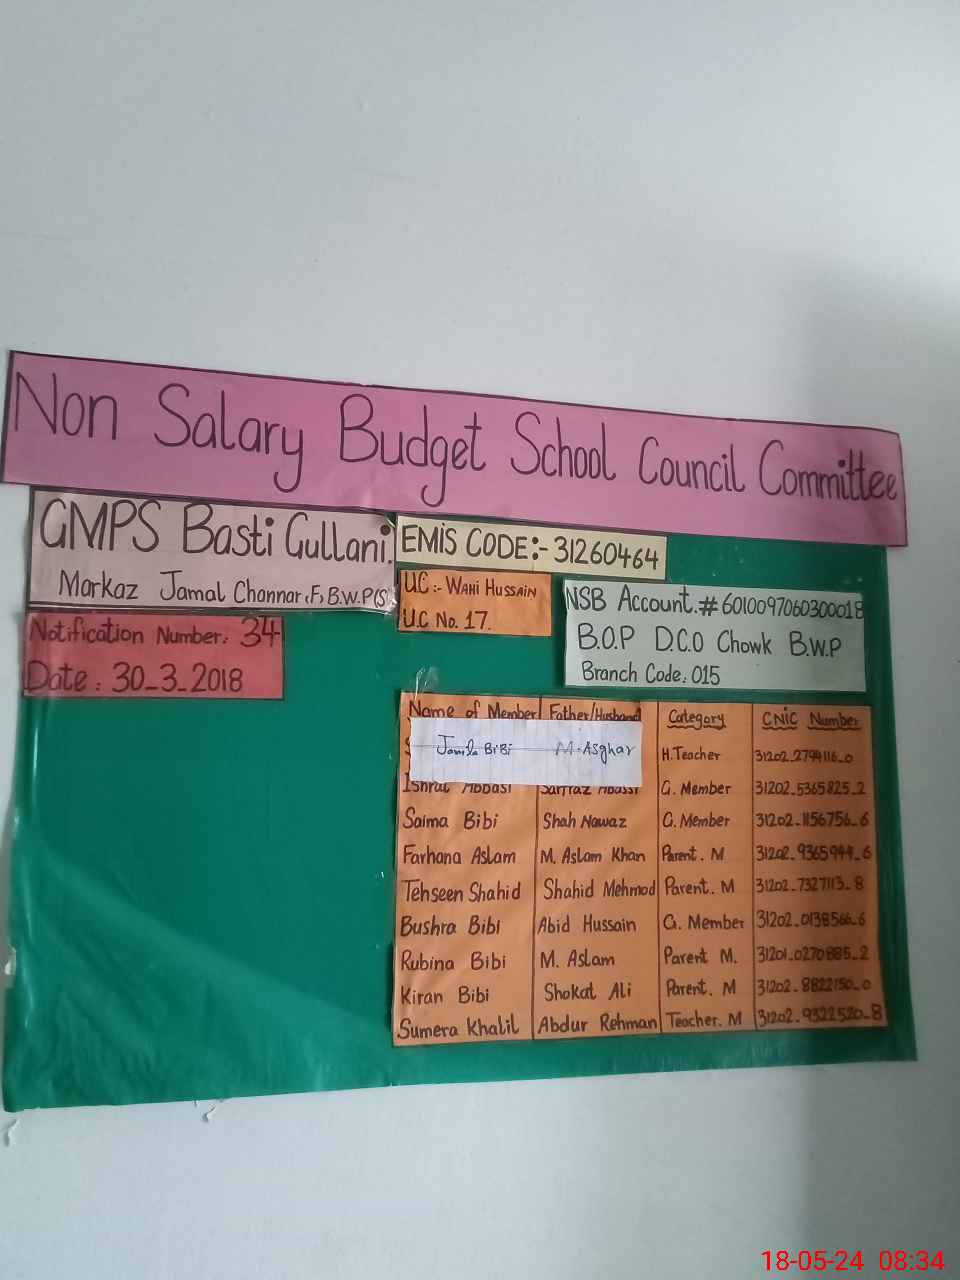 Non Salary Budget School Council Committee
GMPS Basti Gullani.
Markaz Jamal Channar.F, B.W.P(S)
EMIS CODE:- 31260464
UC:- WAHI HUSSAIN
U.C No. 17.
NSB Account.# 6010097060300018
B.O.P D.C.O Chowk B.W.P
Branch Code: 015
Notification Number: 34
Date: 30_3_2018
Name of Member Father/Husband Category CNIC Number
Jamila BiBi M.Asghar H.Teacher 31202_2794116_0
Ishrat Abbasi Sarfraz Abbasi G. Member 31202_5365825_2
Saima Bibi Shah Nawaz G. Member 31202_1156756_6
Farhana Aslam M. Aslam Khan Parent. M 31202_9365944_6
Tehseen Shahid Shahid Mehmod Parent. M 31202_7327113_8
Bushra Bibi Abid Hussain G. Member 31202_0138566_6
Rubina Bibi M. Aslam Parent M. 31201_0270885_2
Kiran Bibi Shokat Ali Parent. M 31202_8822150_0
Sumera Khalil Abdur Rehman Teacher. M 31202_9322520_8
18-05-24 08:34